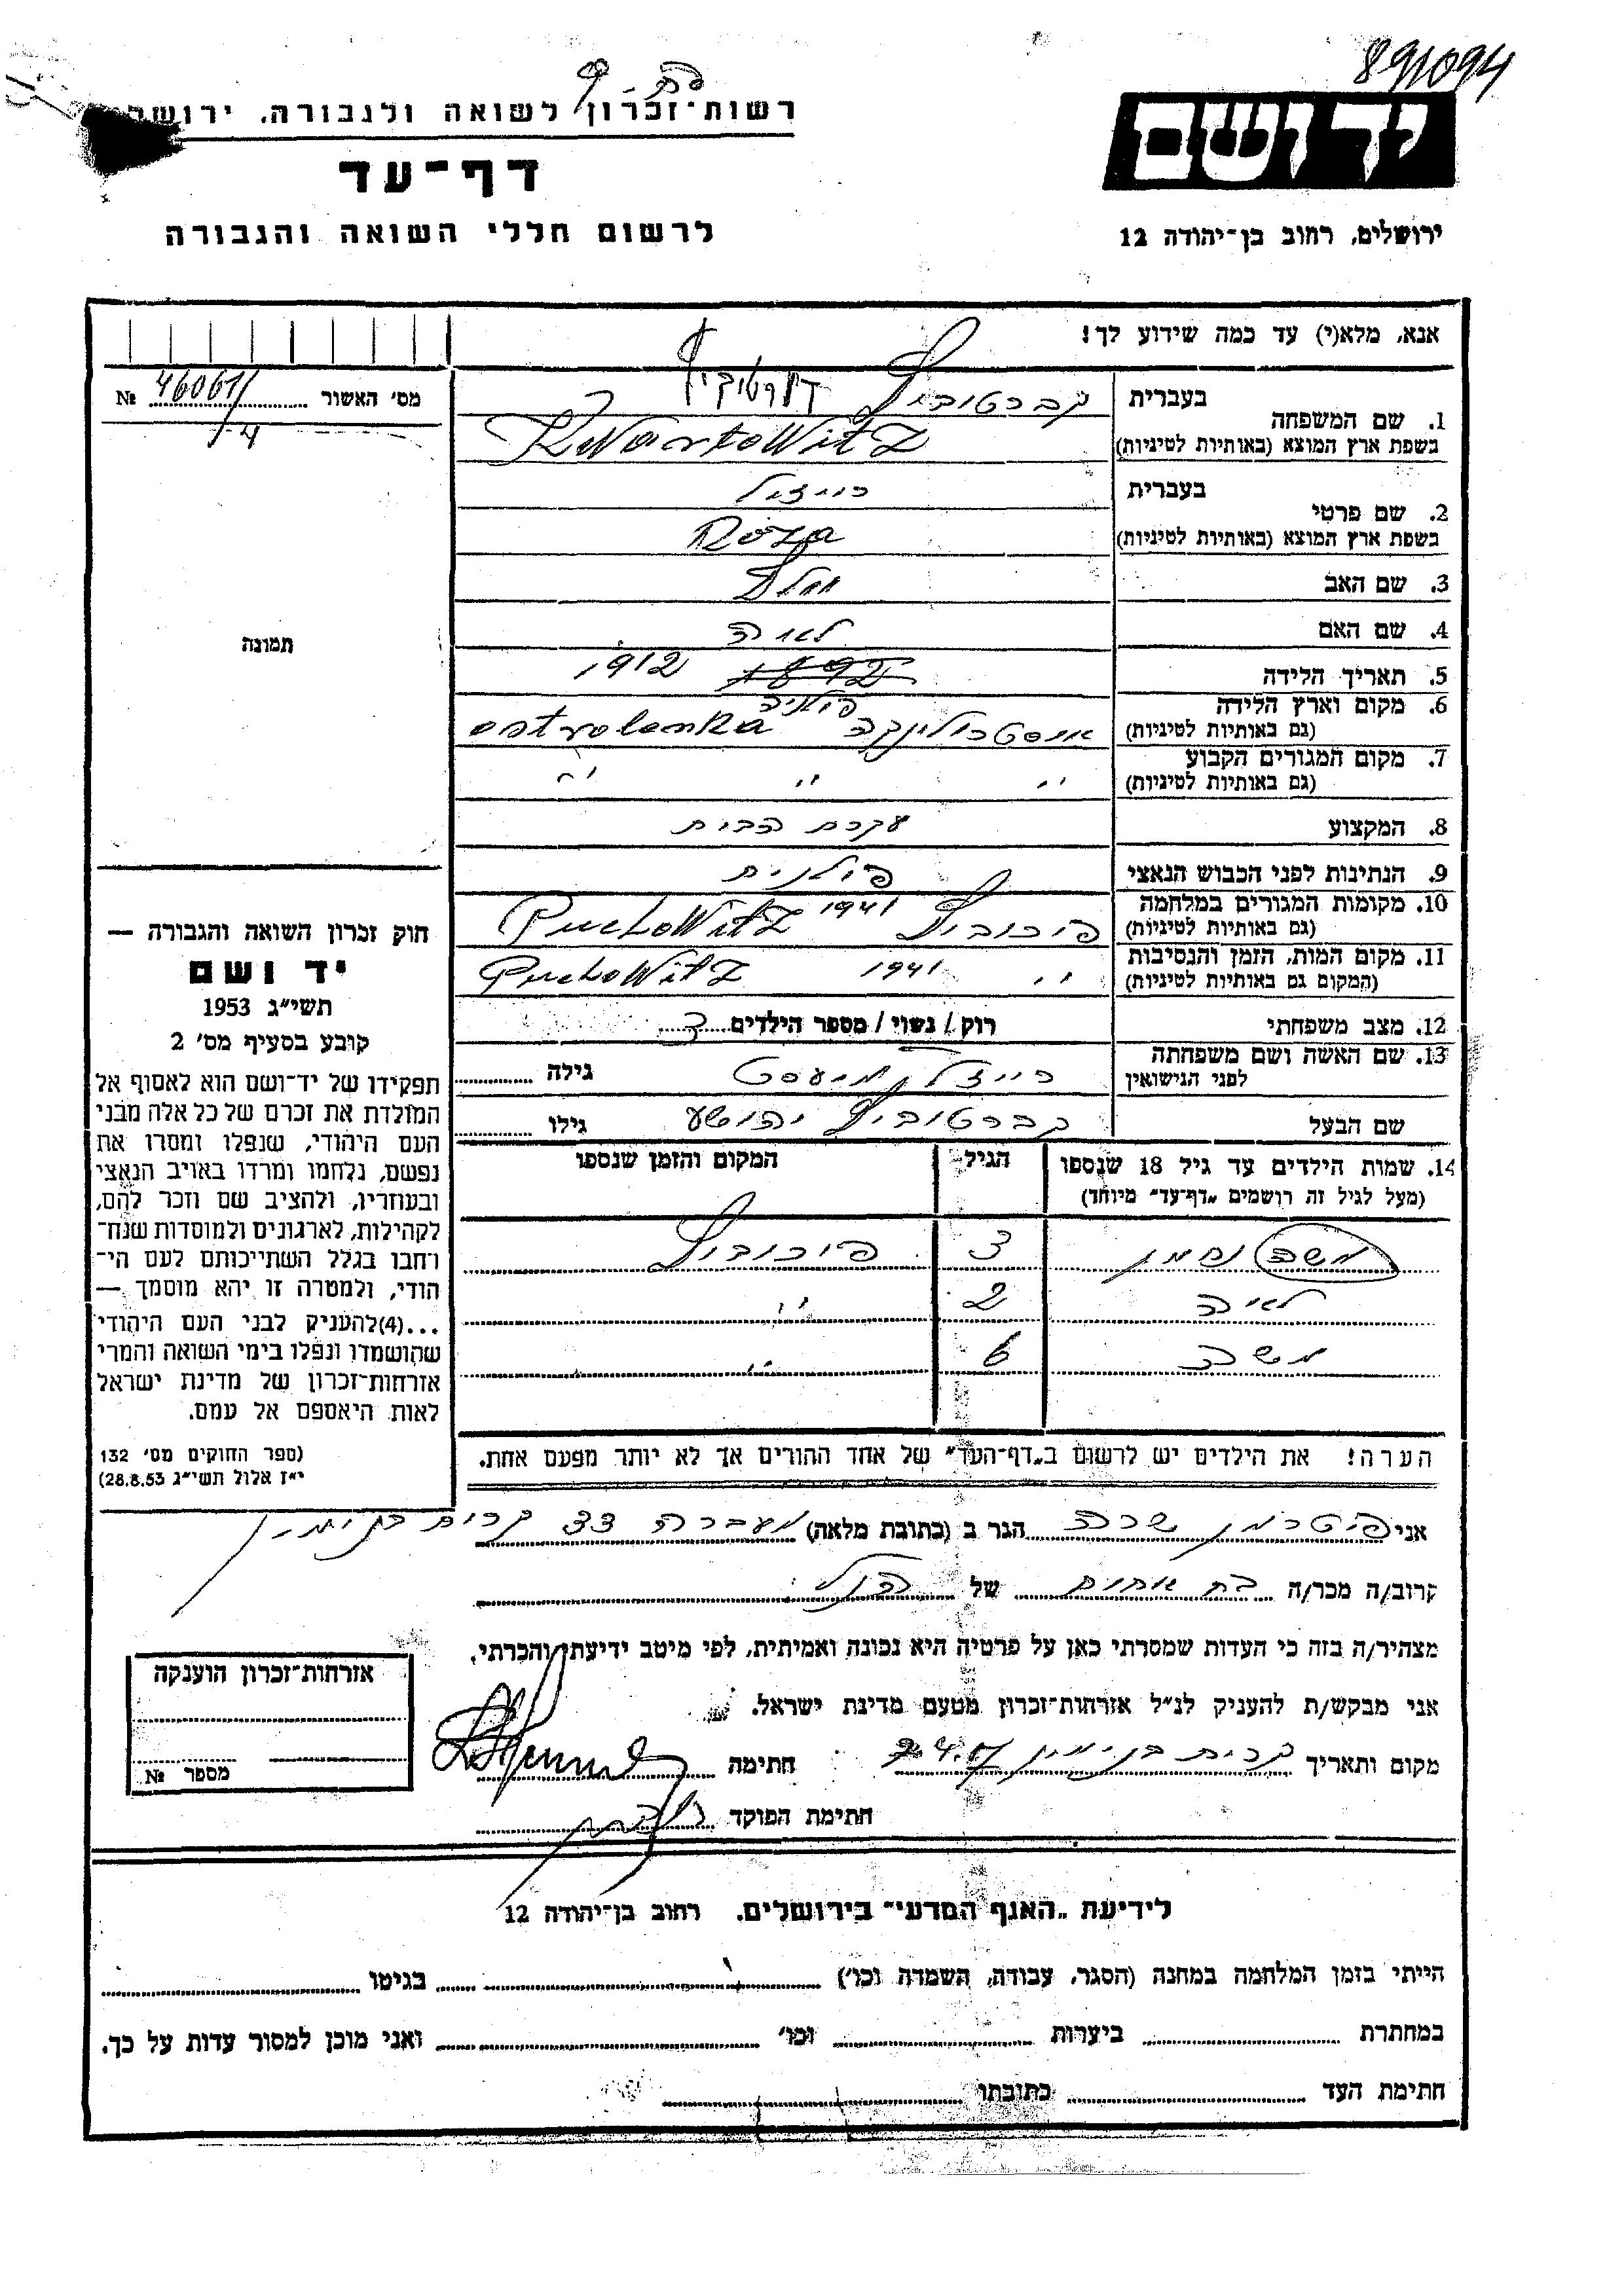 891094
רשות־זכרון לשואה ולגבורה, ירושל
דף־עד
לרשום חללי השואה והגבורה
יד ושם
ירושלים, רחוב בן־יהודה 12
אנא, מלא(י) עד כמה שידוע לך!
מס׳ האשור 46061/ №
14
תמונה
1. שם המשפחה
בעברית קברטוביץ קורטוביץ
בשפת ארץ המוצא (באותיות לטיניות) KWartoWitz
2. שם פרטי
בעברית רייזל
בשפת ארץ המוצא (באותיות לטיניות) Roza
3. שם האב
4. שם האם לאה
5. תאריך הלידה 1892 1912
6. מקום וארץ הלידה פולניה
(גם באותיות לטיניות) אוסטרולינקה ostrolenka
7. מקום המגורים הקבוע
(גם באותיות לטיניות) ״ ״ ״
8. המקצוע עקרת הבית
9. הנתינות לפני הכבוש הנאצי פולנית
10. מקומות המגורים במלחמה
(גם באותיות לטיניות) פוכוביץ 1941 PuchoWitz
11. מקום המות, הזמן והנסיבות
(המקום גם באותיות לטיניות) ״ 1941 PuchoWitz
12. מצב משפחתי רוק / נשוי / מספר הילדים 3
13. שם האשה ושם משפחתה
לפני הנישואין רייזל גילה
שם הבעל קברטוביץ יהושע גילו
14. שמות הילדים עד גיל 18 שנספו הגיל המקום והזמן שנספו
(מעל לגיל זה רושמים „דף־עד״ מיוחד)
משה נחמן 3 פוכוביץ
לאה 2 ״
משה 6 ״
הערה! את הילדים יש לרשום ב„דף־העד״ של אחד ההורים אך לא יותר מפעם אחת.
חוק זכרון השואה והגבורה —
יד ושם
תשי״ג 1953
קובע בסעיף מס׳ 2
תפקידו של יד־ושם הוא לאסוף אל
המולדת את זכרם של כל אלה מבני
העם היהודי, שנפלו ומסרו את
נפשם, נלחמו ומרדו באויב הנאצי
ובעוזריו, ולהציב שם וזכר להם,
לקהילות, לארגונים ולמוסדות שנח־
רחבו בגלל השתייכותם לעם הי־
הודי, ולמטרה זו יהא מוסמך —
...(4)להעניק לבני העם היהודי
שהושמדו ונפלו בימי השואה והמרי
אזרחות־זכרון של מדינת ישראל
לאות היאספם אל עמם.
(ספר החוקים מס׳ 132
י״ז אלול תשי״ג 28.8.53)
אני פיטרמן שרה הגר ב (כתובת מלאה) מעברה 33 קרית בנימין
קרוב/ה מכר/ה בת אחים של הנ״ל
מצהיר/ה בזה כי העדות שמסרתי כאן על פרטיה היא נכונה ואמיתית, לפי מיטב ידיעתי והכרתי.
אני מבקש/ת להעניק לנ״ל אזרחות־זכרון מטעם מדינת ישראל.
מקום ותאריך קרית בנימין חתימה
חתימת הפוקד
אזרחות־זכרון הוענקה
מספר №
לידיעת „האגף המדעי״ בירושלים, רחוב בן־יהודה 12
הייתי בזמן המלחמה במחנה (הסגר, עבודה, השמדה וכו׳) בגיטו
במחתרת ביערות וכו׳ ואני מוכן למסור עדות על כך.
חתימת העד כתובתו